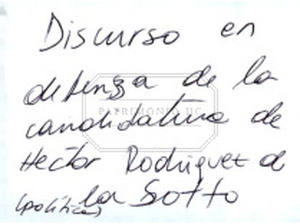 Discurso en
defensa de la
candidatura de
Hector Rodriguez de
la Sotto
PATRIMONIO UC